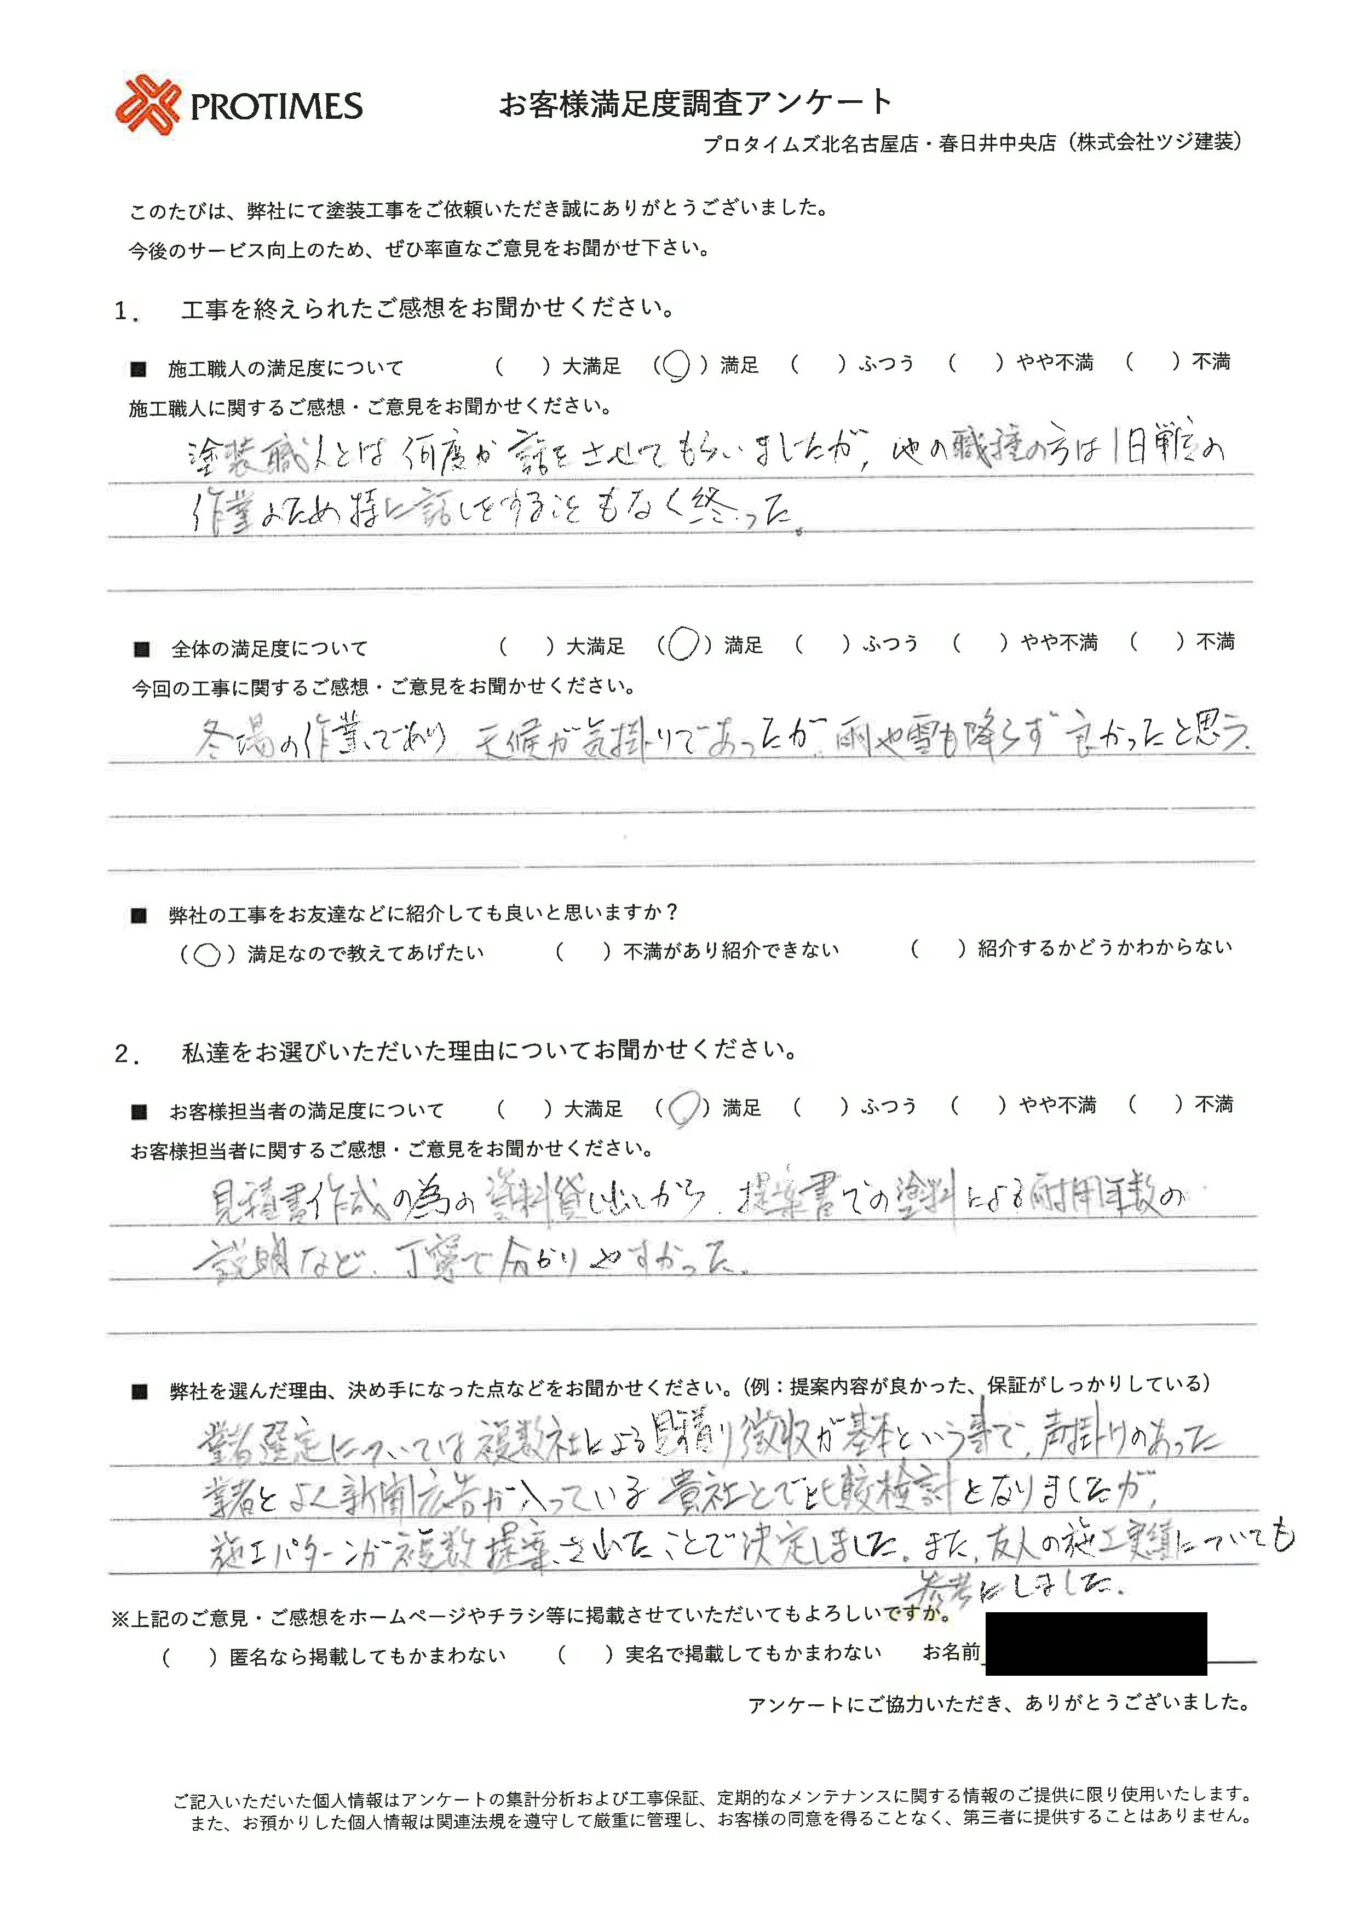 PROTIMES
お客様満足度調査アンケート
プロタイムズ北名古屋店・春日井中央店（株式会社ツジ建装）
このたびは、弊社にて塗装工事をご依頼いただき誠にありがとうございました。
今後のサービス向上のため、ぜひ率直なご意見をお聞かせ下さい。
1． 工事を終えられたご感想をお聞かせください。
■ 施工職人の満足度について （ ）大満足 （○）満足 （ ）ふつう （ ）やや不満 （ ）不満
施工職人に関するご感想・ご意見をお聞かせください。
塗装職人とは何度か話をさせてもらいましたが、他の職種の方は1日単位の
作業のため特に話しをすることもなく終った。
■ 全体の満足度について （ ）大満足 （○）満足 （ ）ふつう （ ）やや不満 （ ）不満
今回の工事に関するご感想・ご意見をお聞かせください。
冬場の作業であり 天候が気掛りであったが、雨や雪も降らず良かったと思う。
■ 弊社の工事をお友達などに紹介しても良いと思いますか？
（○）満足なので教えてあげたい （ ）不満があり紹介できない （ ）紹介するかどうかわからない
2． 私達をお選びいただいた理由についてお聞かせください。
■ お客様担当者の満足度について （ ）大満足 （○）満足 （ ）ふつう （ ）やや不満 （ ）不満
お客様担当者に関するご感想・ご意見をお聞かせください。
見積書作成の為の資料貸し出しから、提案書での塗料による耐用年数の
説明など、丁寧で分かりやすかった。
■ 弊社を選んだ理由、決め手になった点などをお聞かせください。（例：提案内容が良かった、保証がしっかりしている）
業者選定については複数社による見積り徴収が基本という事で、声掛けのあった
業者とよく新聞広告が入っている貴社とで比較検討となりましたが、
施工パターンが複数提案されたことで決定しました。また、友人の施工実績についても
参考にしました。
※上記のご意見・ご感想をホームページやチラシ等に掲載させていただいてもよろしいですか。
（ ）匿名なら掲載してもかまわない （ ）実名で掲載してもかまわない お名前
アンケートにご協力いただき、ありがとうございました。
ご記入いただいた個人情報はアンケートの集計分析および工事保証、定期的なメンテナンスに関する情報のご提供に限り使用いたします。
また、お預かりした個人情報は関連法規を遵守して厳重に管理し、お客様の同意を得ることなく、第三者に提供することはありません。